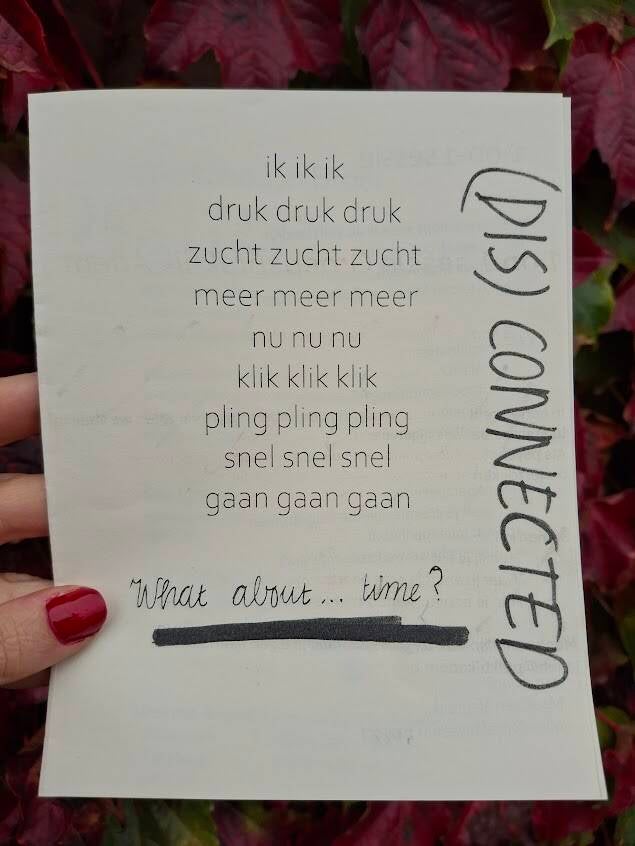 ik ik ik
druk druk druk
zucht zucht zucht
meer meer meer
nu nu nu
klik klik klik
pling pling pling
snel snel snel
gaan gaan gaan
What about... time?
(DIS) CONNECTED